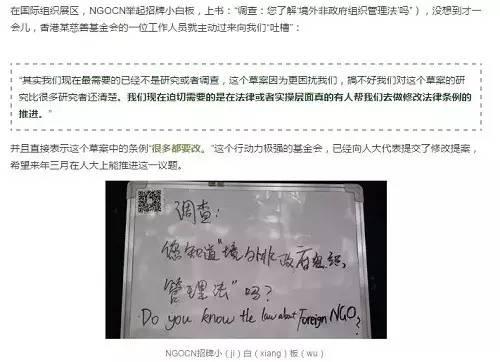 在国际组织展区，NGOCN举起招牌小白板，上书：“调查：您了解‘境外非政府组织管理法’吗”），没想到才一
会儿，香港某慈善基金会的一位工作人员就主动过来向我们“吐槽”：
“其实我们现在最需要的已经不是研究或者调查，这个草案因为更困扰我们，搞不好我们对这个草案的研
究比很多研究者还清楚。我们现在迫切需要的是在法律或者实操层面真的有人帮我们去做修改法律条例的
推进。”
并且直接表示这个草案中的条例“很多都要改。”这个行动力极强的基金会，已经向人大代表提交了修改提案，
希望来年三月在人大上能推进这一议题。
调查：
您知道“境外非政府组织
管理法”吗？
Do you know the law about Foreign NGO?
NGOCN招牌小（ji）白（xiang）板（wu）